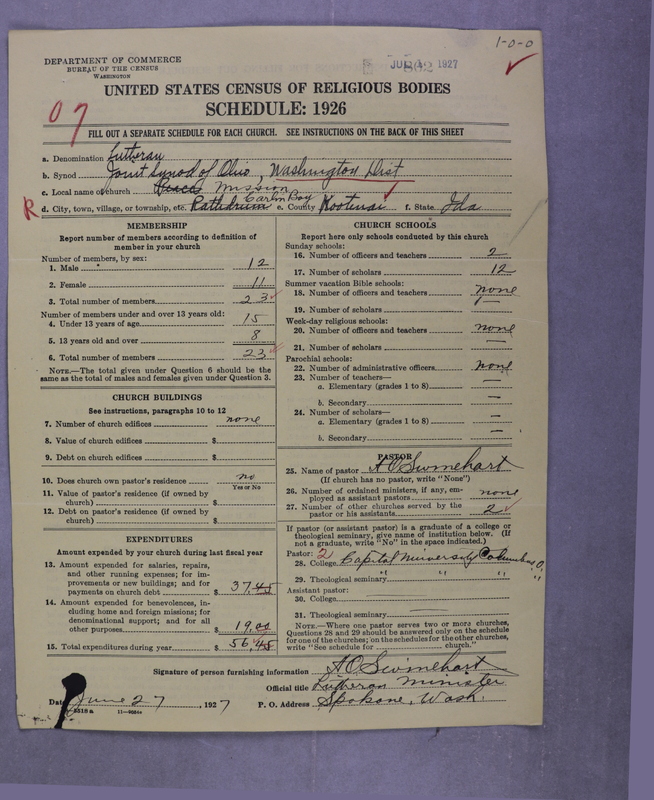 1-0-0
DEPARTMENT OF COMMERCE
BUREAU OF THE CENSUS
WASHINGTON
1927
UNITED STATES CENSUS OF RELIGIOUS BODIES
SCHEDULE: 1926
07
FILL OUT A SEPARATE SCHEDULE FOR EACH CHURCH. SEE INSTRUCTIONS ON THE BACK OF THIS SHEET
a. Denomination Lutheran
b. Synod Joint Synod of Ohio, Washington Dist
c. Local name of church Mission
Carlin Bay
R d. City, town, village, or township, etc. Rathdrum e. County Kootenai f. State Ida
MEMBERSHIP
Report number of members according to definition of
member in your church
Number of members, by sex:
1. Male 12
2. Female 11
3. Total number of members 23
Number of members under and over 13 years old:
4. Under 13 years of age 15
5. 13 years old and over 8
6. Total number of members 23
NOTE.—The total given under Question 6 should be the
same as the total of males and females given under Question 3.
CHURCH BUILDINGS
See instructions, paragraphs 10 to 12
7. Number of church edifices none
8. Value of church edifices $
9. Debt on church edifices $
10. Does church own pastor's residence no
Yes or No
11. Value of pastor's residence (if owned by
church) $
12. Debt on pastor's residence (if owned by
church) $
EXPENDITURES
Amount expended by your church during last fiscal year
13. Amount expended for salaries, repairs,
and other running expenses; for im-
provements or new buildings; and for
payments on church debt $ 37.45
14. Amount expended for benevolences, in-
cluding home and foreign missions; for
denominational support; and for all
other purposes $ 19.00
15. Total expenditures during year $ 56.45
CHURCH SCHOOLS
Report here only schools conducted by this church
Sunday schools:
16. Number of officers and teachers 2
17. Number of scholars 12
Summer vacation Bible schools:
18. Number of officers and teachers none
19. Number of scholars —
Week-day religious schools:
20. Number of officers and teachers none
21. Number of scholars —
Parochial schools:
22. Number of administrative officers none
23. Number of teachers—
a. Elementary (grades 1 to 8) —
b. Secondary —
24. Number of scholars—
a. Elementary (grades 1 to 8) —
b. Secondary —
PASTOR
25. Name of pastor A O Swinehart
(If church has no pastor, write "None")
26. Number of ordained ministers, if any, em-
ployed as assistant pastors none
27. Number of other churches served by the
pastor or his assistants 2
If pastor (or assistant pastor) is a graduate of a college or
theological seminary, give name of institution below. (If
not a graduate, write "No" in the space indicated.)
Pastor: 2
28. College Capital University Columbus O.
29. Theological seminary " " "
Assistant pastor:
30. College
31. Theological seminary
NOTE.—Where one pastor serves two or more churches,
Questions 28 and 29 should be answered only on the schedule
for one of the churches; on the schedules for the other churches,
write "See schedule for church."
Signature of person furnishing information A O Swinehart
Official title Lutheran Minister
Date June 27, 1927 P. O. Address Spokane, Wash.